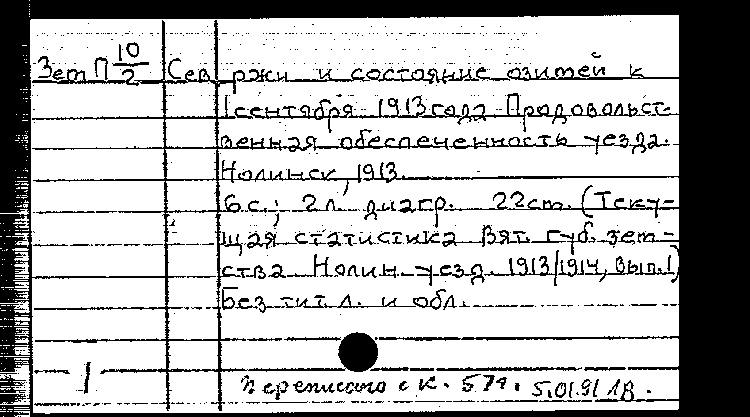 Зет П 10/2 Сев ржи и состояние озимей к
1 сентября 1913 года. Продовольст-
венная обеспеченность уезда.
Нолинск, 1913.
6 с.; 2 л. диагр. 22 cm. (Теку-
щая статистика Вят. губ. зет-
ства Нолин. уезд. 1913/1914, вып. 1)
Без тит. л. и обл.
1
Переписано с к. 574. 5.01.91